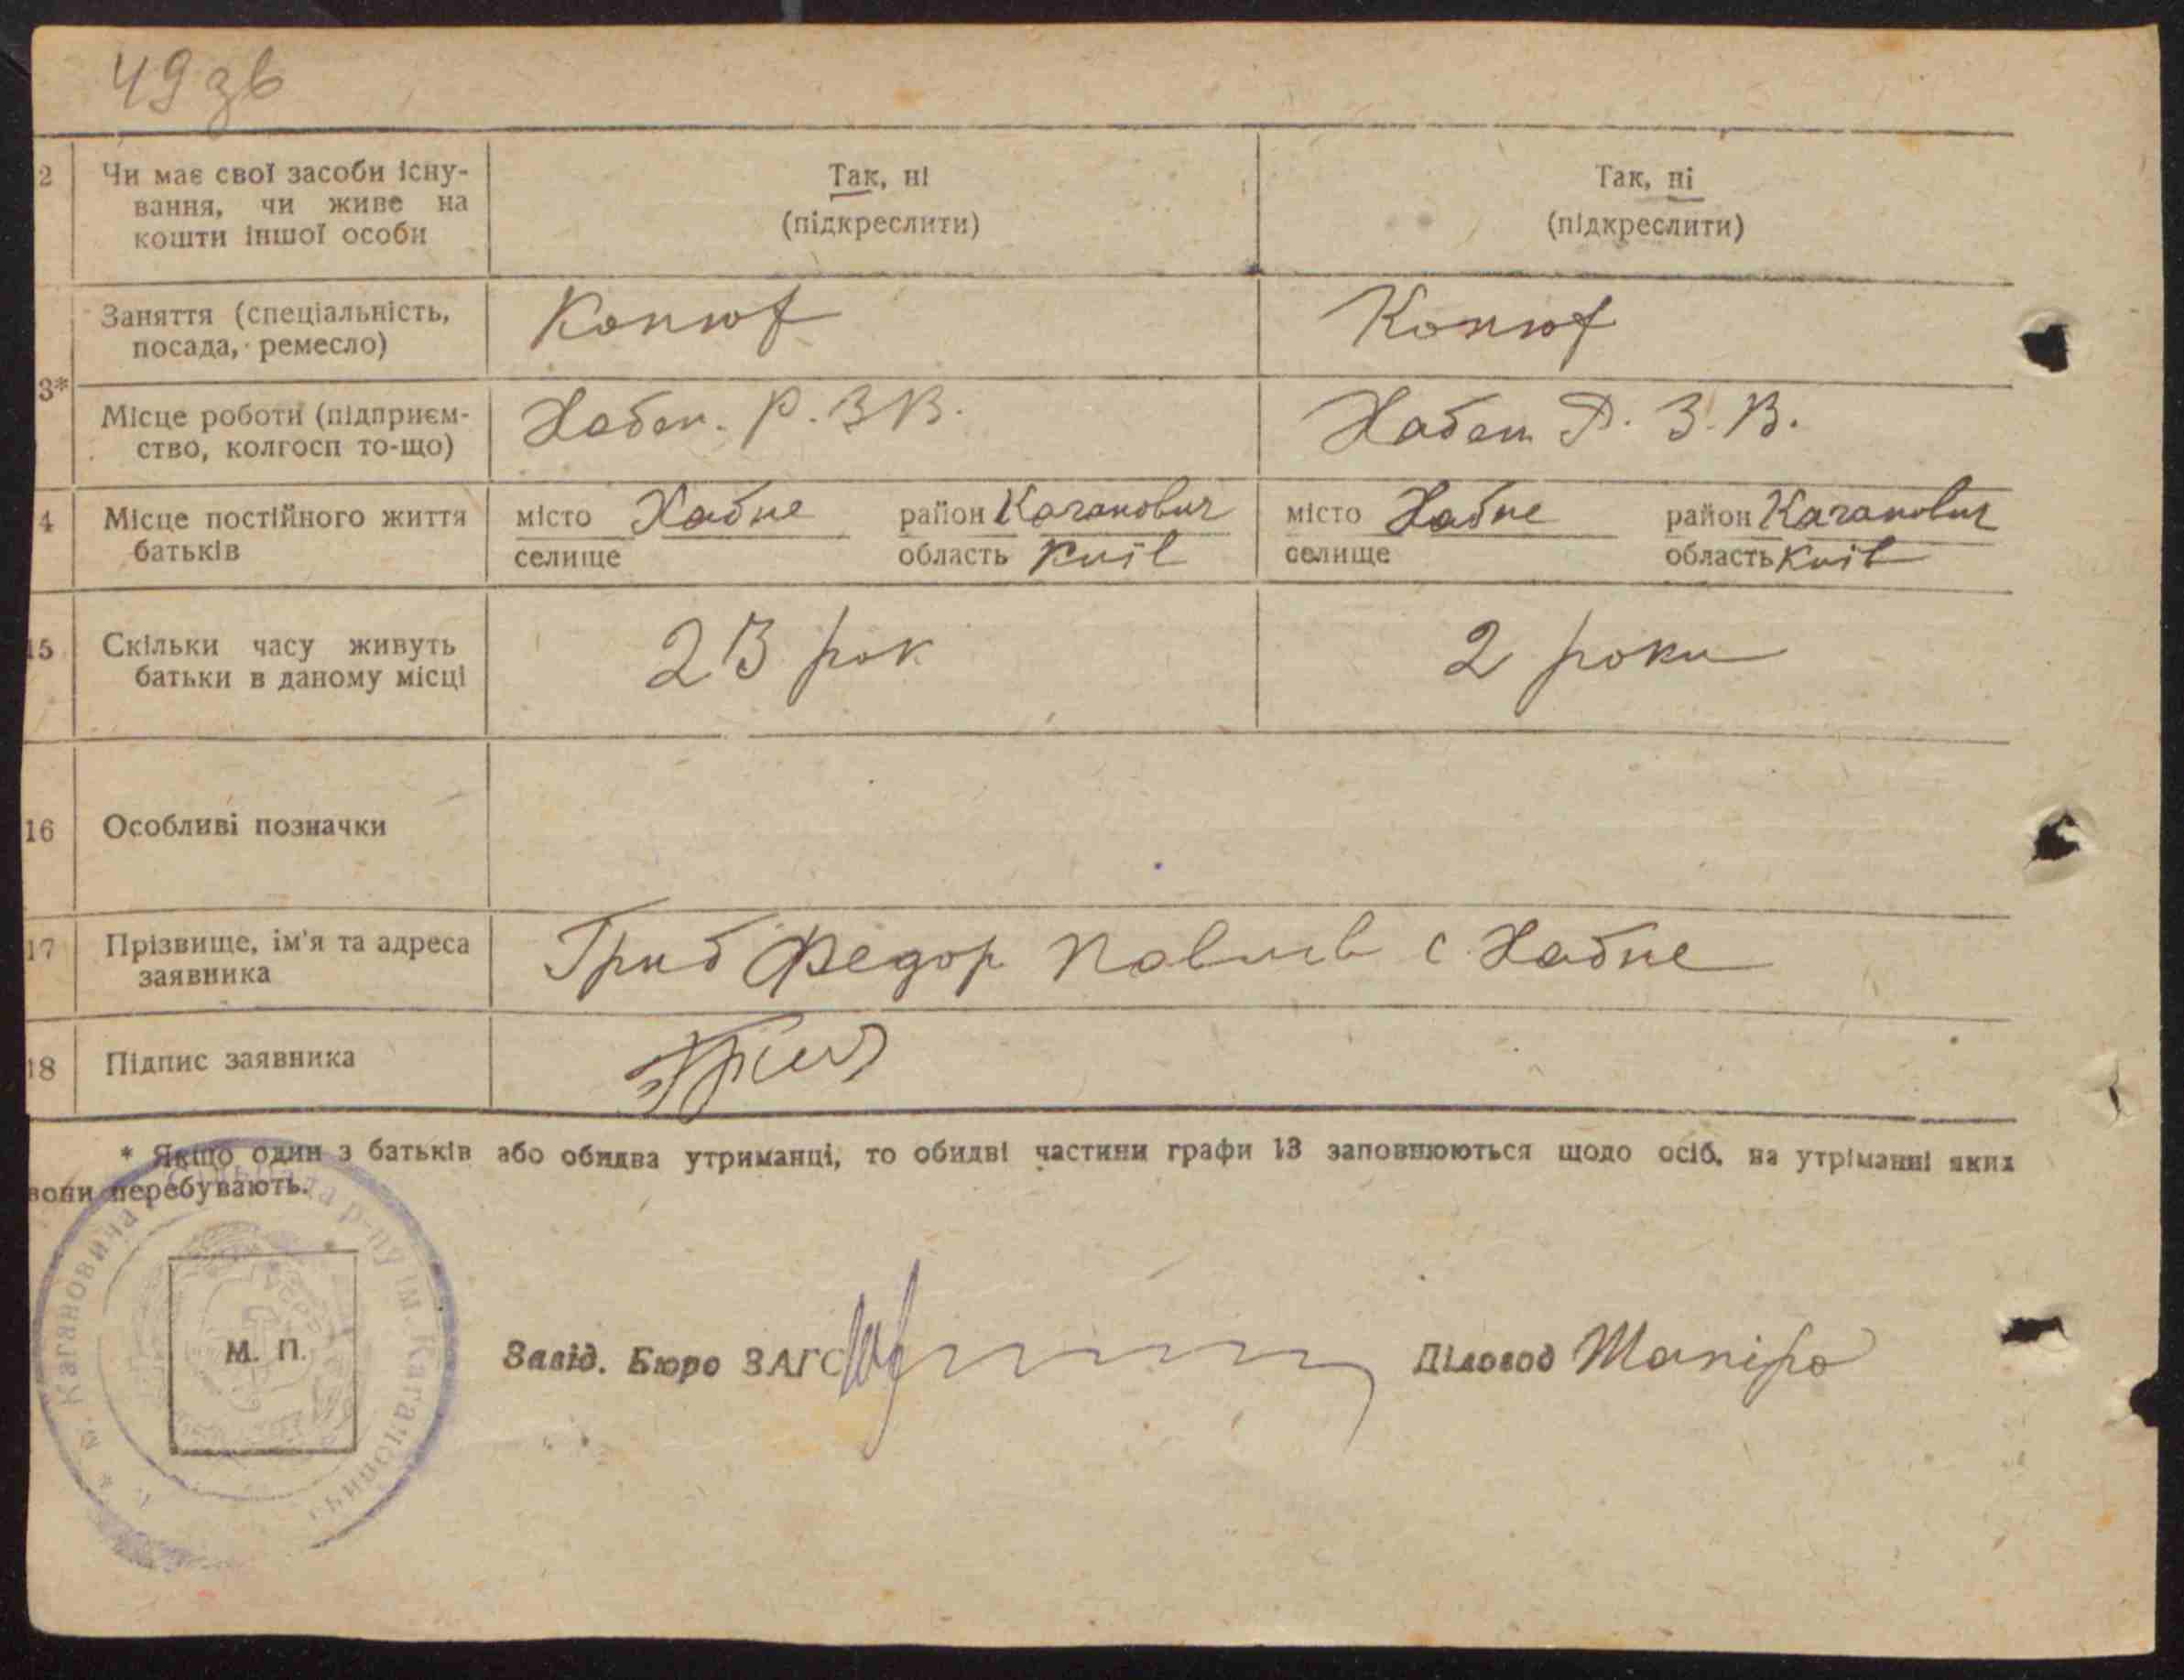 49зв
2 Чи має свої засоби існу-
вання, чи живе на
кошти іншої особи
Так, ні
(підкреслити)
Так, ні
(підкреслити)
3* Заняття (спеціальність,
посада, ремесло)
Конюх
Конюх
Місце роботи (підприєм-
ство, колгосп то-що)
Хабен. Р. З В.
Хабен Р. З. В.
4 Місце постійного життя
батьків
місто Хабне район Каганович
селище область Київ
місто Хабне район Каганович
селище область Київ
15 Скільки часу живуть
батьки в даному місці
23 рок
2 роки
16 Особливі позначки
17 Прізвище, ім'я та адреса
заявника
Гриб Федор Павлов с. Хабне
18 Підпис заявника
* Якщо один з батьків або обидва утриманці, то обидві частини графи 13 заповнюються щодо осіб, на утріманні яких
вони перебувають.
м. Кагановича р-ну ім. Кагановича
М. П.
Завід. Бюро ЗАГС
Діловод Шапіро